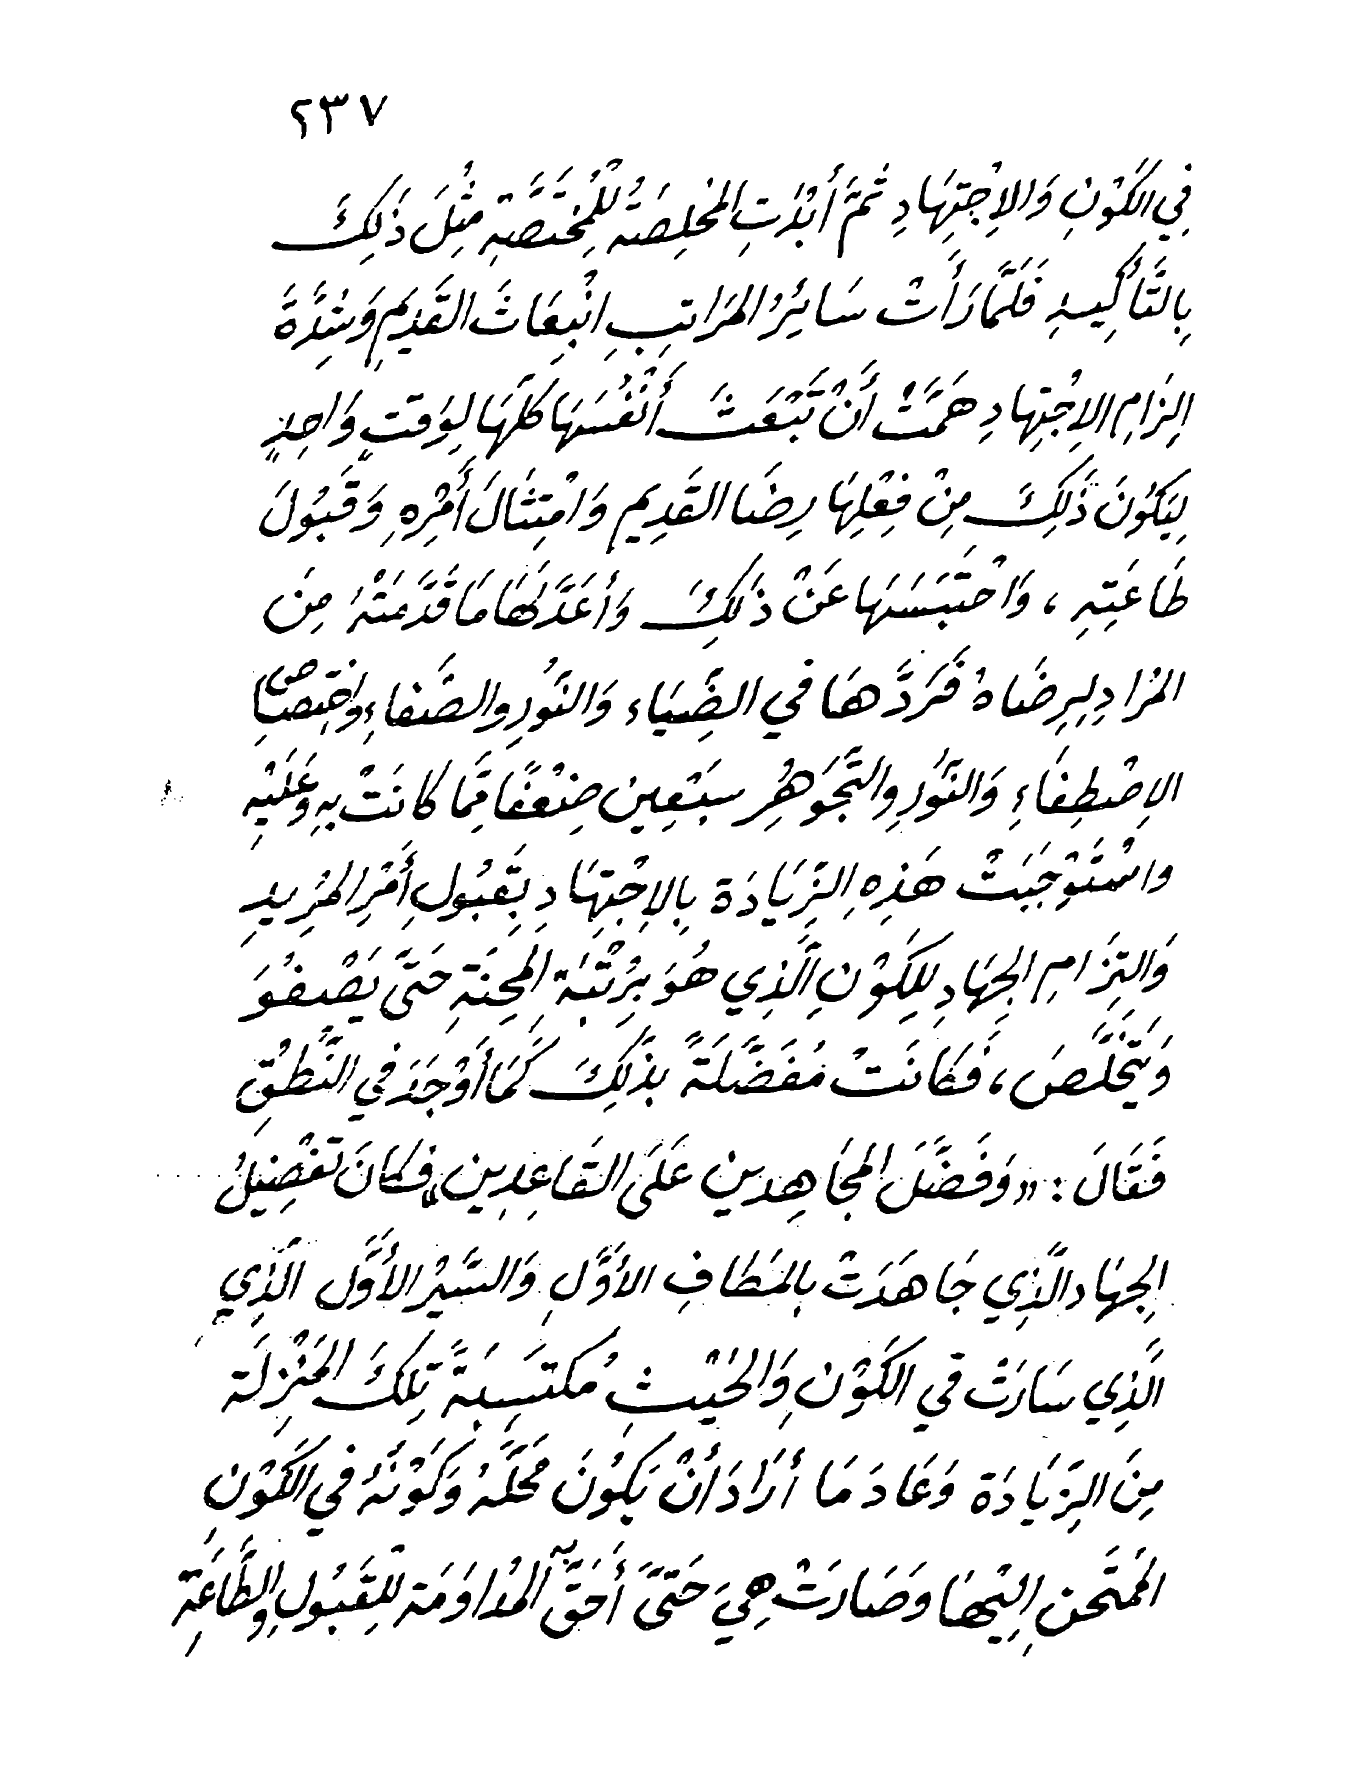 ٢٣٧
فِي الكَوْنِ وَالِاجْتِهَادِ ثُمَّ أَبْدَتِ المُخْلِصَةُ لِلْمُخْتَصَّةِ مِثْلَ ذَلِكَ
بِالتَّأْكِيدِ فَلَمَّا رَأَتْ سَائِرُ المَرَاتِبِ انْبِعَاثَ القَدِيمِ وَشِدَّةَ
إلزَامِ الاِجْتِهَادِ هَمَّتْ أَنْ تَبْعَثَ أَنْفُسَهَا كُلَّهَا لِوَقتٍ وَاحِدٍ
لِيَكُونَ ذَلِكَ مِنْ فِعْلِهَا رِضَا القَدِيمِ وَامْتِثَالَ أَمْرِهِ وَقَبُولَ
طَاعَتِهِ ، وَاحْتَبَسَهَا عَنْ ذَلِكَ وَأَعَدَّ لَهَا مَا قَدَّمَتْهُ مِنَ
المُرَادِ لِرِضَاهُ فَرَدَّهَا فِي الضِّيَاءِ وَالنُّورِ والصَّفَاءِ وَاخْتِصَاصِ
الاِصْطِفَاءِ وَالنُّورِ والتَّجَوْهُرِ سَبْعِين ضِعْفًا مِمَّا كَانَتْ بِهِ وَعَلَيْهِ
وَاسْتَوْجَبَتْ هَذِهِ الزِّيَادَة بِالاِجْتِهَادِ بِقَبُولِ أَمْرِ المُرِيدِ
وَالتِزَامِ الجِهَادِ لِلكَوْنِ الَّذِي هُوَ بِرُتْبَةِ المِحنَةِ حَتَّى يَصْفُوَ
وَيَتَخَلَّصَ ، فَكَانَتْ مُفَضَّلَةً بذَلِكَ كَمَا أَوْجَدَ فِي النُّطْقِ
فَقَالَ : « وَفَضَّلَ المُجَاهِدِينَ عَلَى القَاعِدِينَ » فَكَانَ تَفْضِيلُ
الجِهَادِ الَّذِي جَاهَدَتْ بِالمَطَافِ الأَوَّلِ وَالسَّيْرِ الأَوَّلِ الَّذِي
الَّذِي سَارَتْ فِي الكَوْنِ وَالحَيْثِ مُكتَسِبَةً تِلكَ المَنْزِلَةَ
مِنَ الزِّيَادَة وَعَادَ مَا أَرَادَ أَنْ يَكُونَ مَحَلَّهُ وَكَوْنَهُ فِي الكَوْنِ
المُمتَحَنِ إِلَيْهَا وَصَارَتْ هِيَ حَتَّى أَحَقَّ بِهِ المُدَاوَمَة لِلقَبُولِ وَالطَّاعَةِ